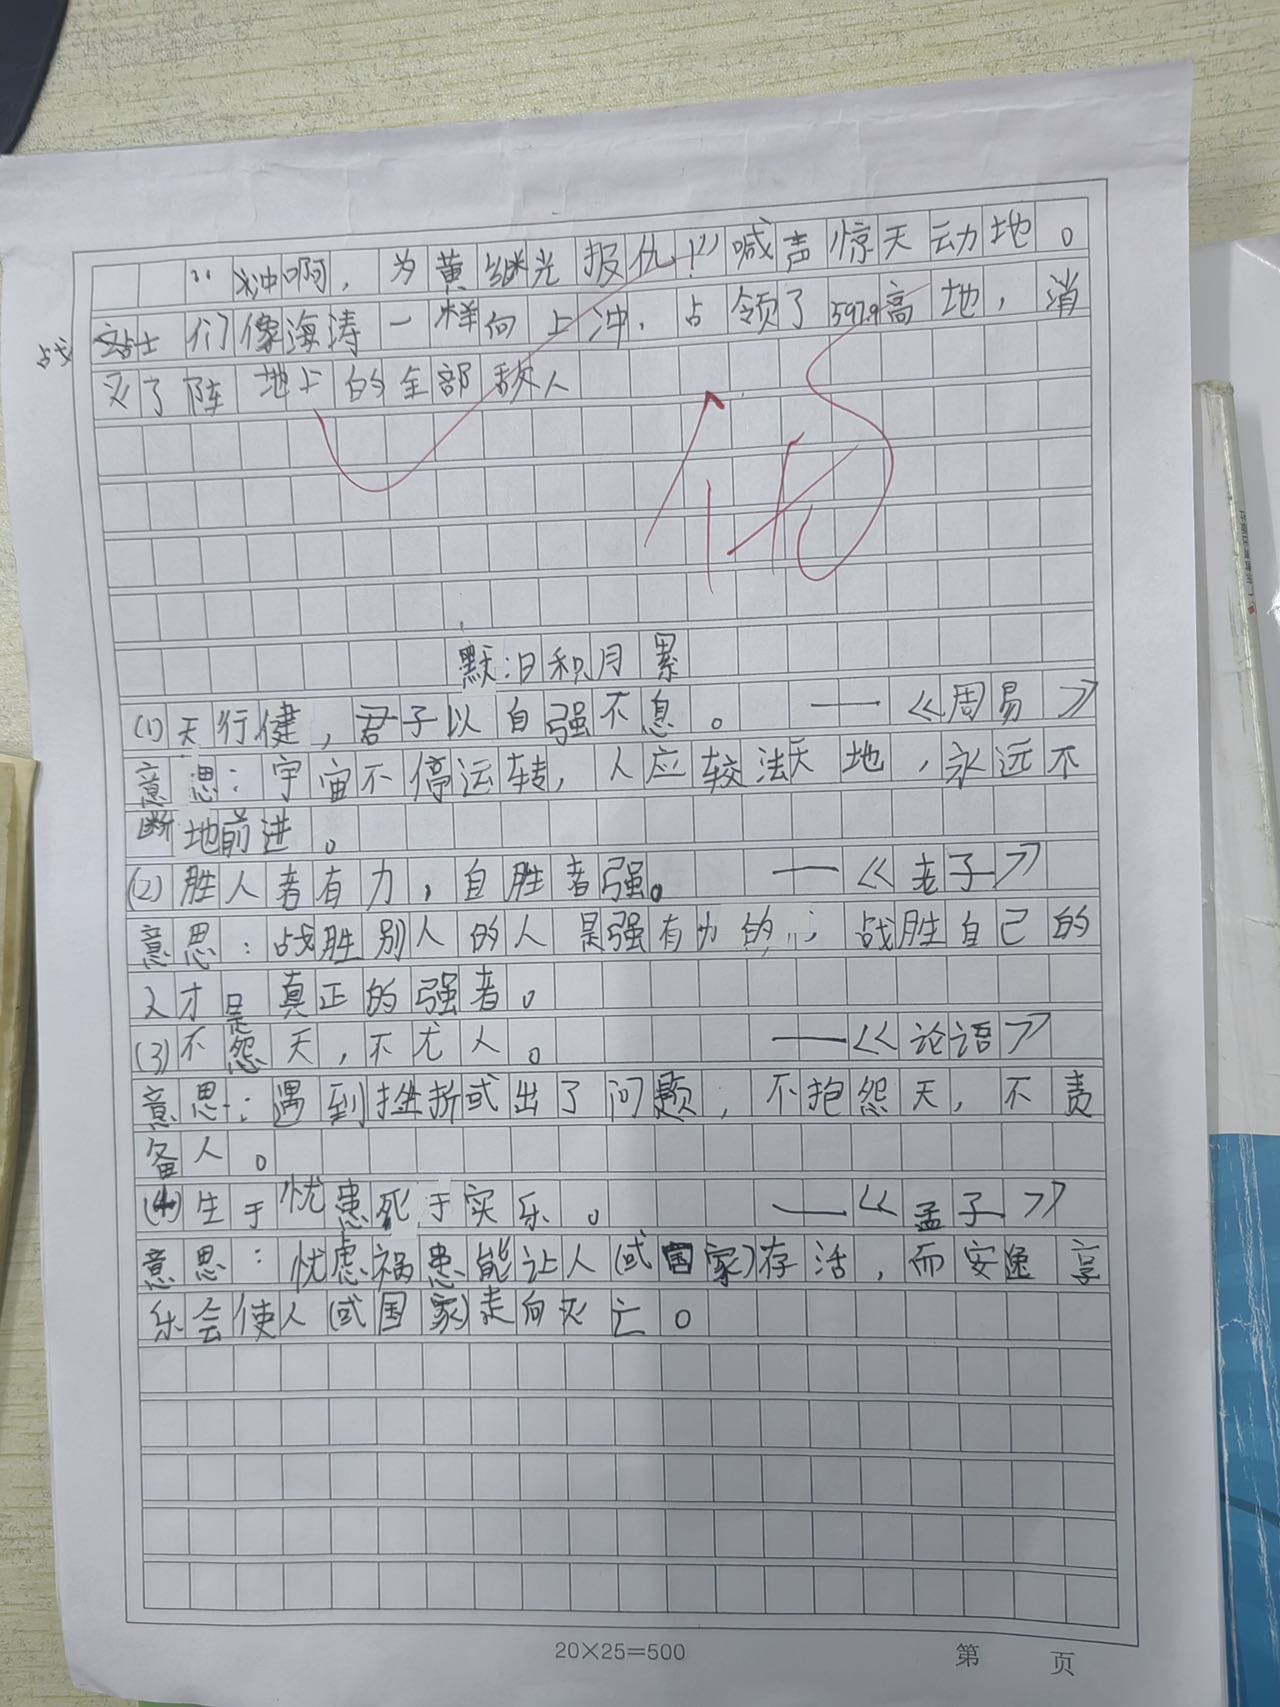 “冲啊，为黄继光报仇！”喊声惊天动地。
战 站士们像海涛一样向上冲，占领了597.9高地，消
灭了阵地上的全部敌人
默：日积月累
(1)天行健，君子以自强不息。——《周易》
意思：宇宙不停运转，人应较法天地，永远不
断地前进。
(2)胜人者有力，自胜者强。——《老子》
意思：战胜别人的人是强有力的；战胜自己的
人才是真正的强者。
(3)不怨天，不尤人。——《论语》
意思：遇到挫折或出了问题，不抱怨天，不责
备人。
(4)生于忧患死于实乐。——《孟子》
意思：忧虑祸患能让人(或国家)存活，而安逸享
乐会使人(或国家)走向灭亡。
20×25=500
第 页